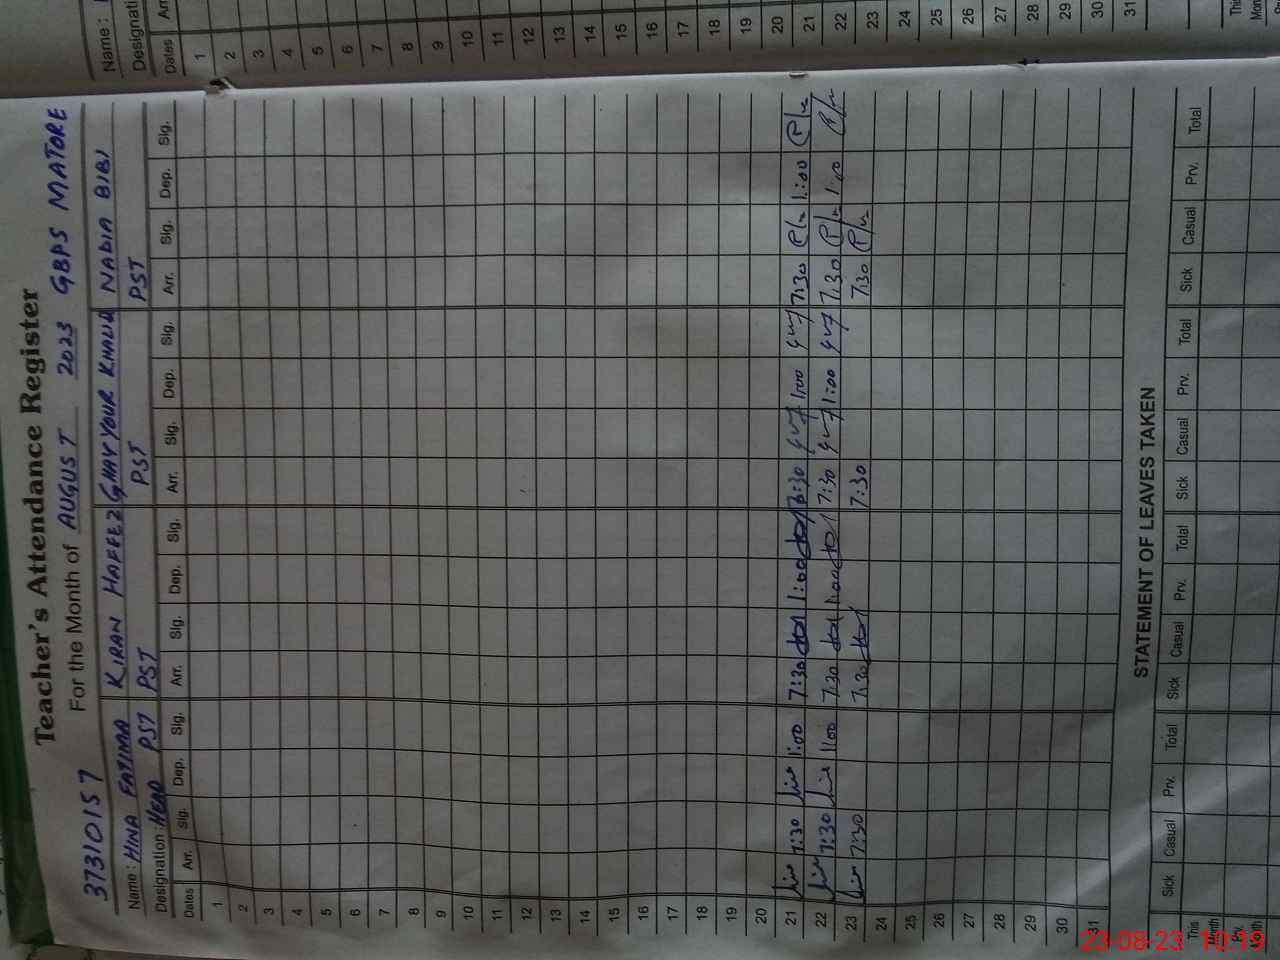 Teacher's Attendance Register
37310157 For the Month of AUGUST 2023 GBPS MATORE
Name: HINA FATIMA KIRAN HAFEEZ GHAYYOUR KHALID NADIA BIBI
Designation: HEAD PST PST PST PST
Dates Arr. Sig. Dep. Sig. Arr. Sig. Dep. Sig. Arr. Sig. Dep. Sig. Arr. Sig. Dep. Sig.
1
2
3
4
5
6
7
8
9
10
11
12
13
14
15
16
17
18
19
20
21 7:30 1:00 7:30 1:00 7:30 1:00 7:30 1:00
22 7:30 1:00 7:30 1:00 7:30 1:00 7:30 1:00
23 7:30 7:30 7:30 7:30
24
25
26
27
28
29
30
31
STATEMENT OF LEAVES TAKEN
Sick Casual Prv. Total Sick Casual Prv. Total Sick Casual Prv. Total Sick Casual Prv. Total
This Month
Prv. Month
Name:
Designati
Dates Arr
1
2
3
4
5
6
7
8
9
10
11
12
13
14
15
16
17
18
19
20
21
22
23
24
25
26
27
28
29
30
31
This
Mon
23-08-23 10:19